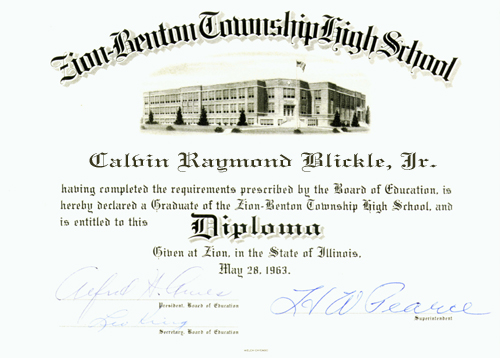 Zion-Benton Township High School
Calvin Raymond Blickle, Jr.
having completed the requirements prescribed by the Board of Education, is
hereby declared a Graduate of the Zion-Benton Township High School, and
is entitled to this Diploma
Given at Zion, in the State of Illinois,
May 28, 1963.
Alfred H. Ames
President, Board of Education
H W Pearce
Superintendent
Secretary, Board of Education